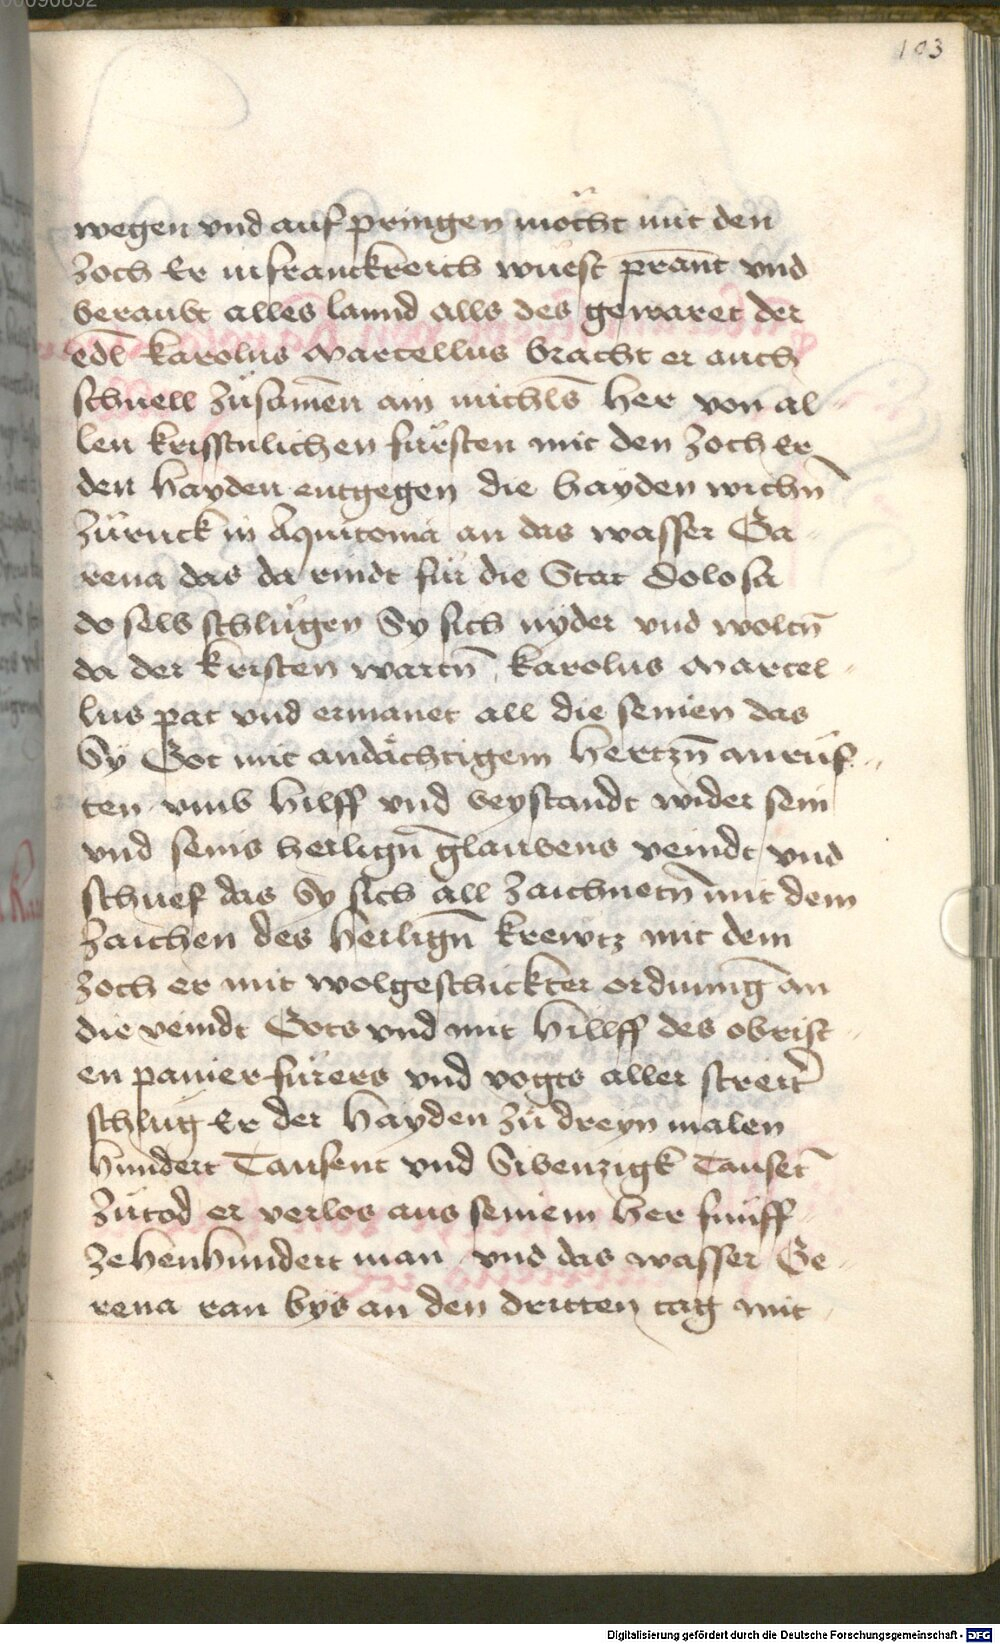 103
wegen vnd auf pringen möcht mit den
zoch Er in franckreich wuest prannt vnd
beraubt alles lannd alls des gewaret der
edl karolus Marcellus bracht er auch
schnell zůsamen ain michls her von al-
len kristnlichen fürsten mit den zoch Er
den hayden entgegen die hayden wichn̄
zůruck in Aquitonia an das wasser Ga-
rena das da rindt für die Stat Dolosa
do selbs schlůgen Sy sich nyder vnd woltn̄
da der kristen wartn̄ karolus Marcel-
lus pat vnd ermanet all die seinen das
Sy Got mit andächtigem hertzn̄ anrůf-
ten vmb hilff vnd beystandt wider sein
vnd seins heilign̄ glaubens veindt vnd
schuef das Sy sich all zaichnetn̄ mit dem
zaichen des heilign̄ krewtz mit dem
zoch er mit wolgeschickter ordnung an
die veindt Gots vnd mit hillff des obrist-
en panier fürers vnd vogts aller streit
schlůg Er der hayden zů dreyn malen
hundert Tausent vnd Sibenzigk Tauset̄
zůtod er verlos aus seinem her funff-
zehenhundert man vnd das wasser Ge-
rena ran bys an den dritten tag mit
Digitalisierung gefördert durch die Deutsche Forschungsgemeinschaft - DFG